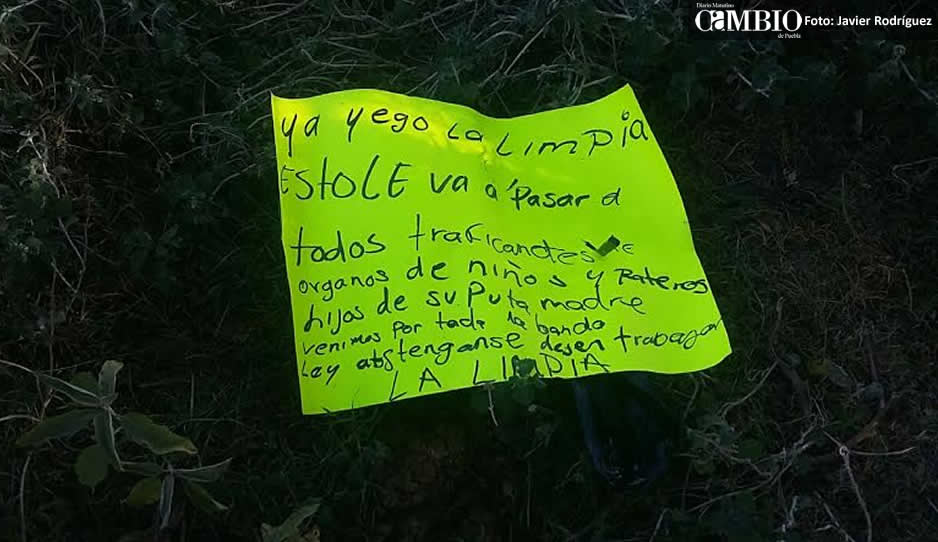 Diario Matutino
CAMBIO
de Puebla
Foto: Javier Rodríguez
ya yego la LIMPIA
ESTOLE va a Pasar a
todos traficantes
organos de niños y Rateros
hijos de su Puta madre
venimos Por toda la banda
Ley abstenganse dejen trabajar
LA LIMPIA